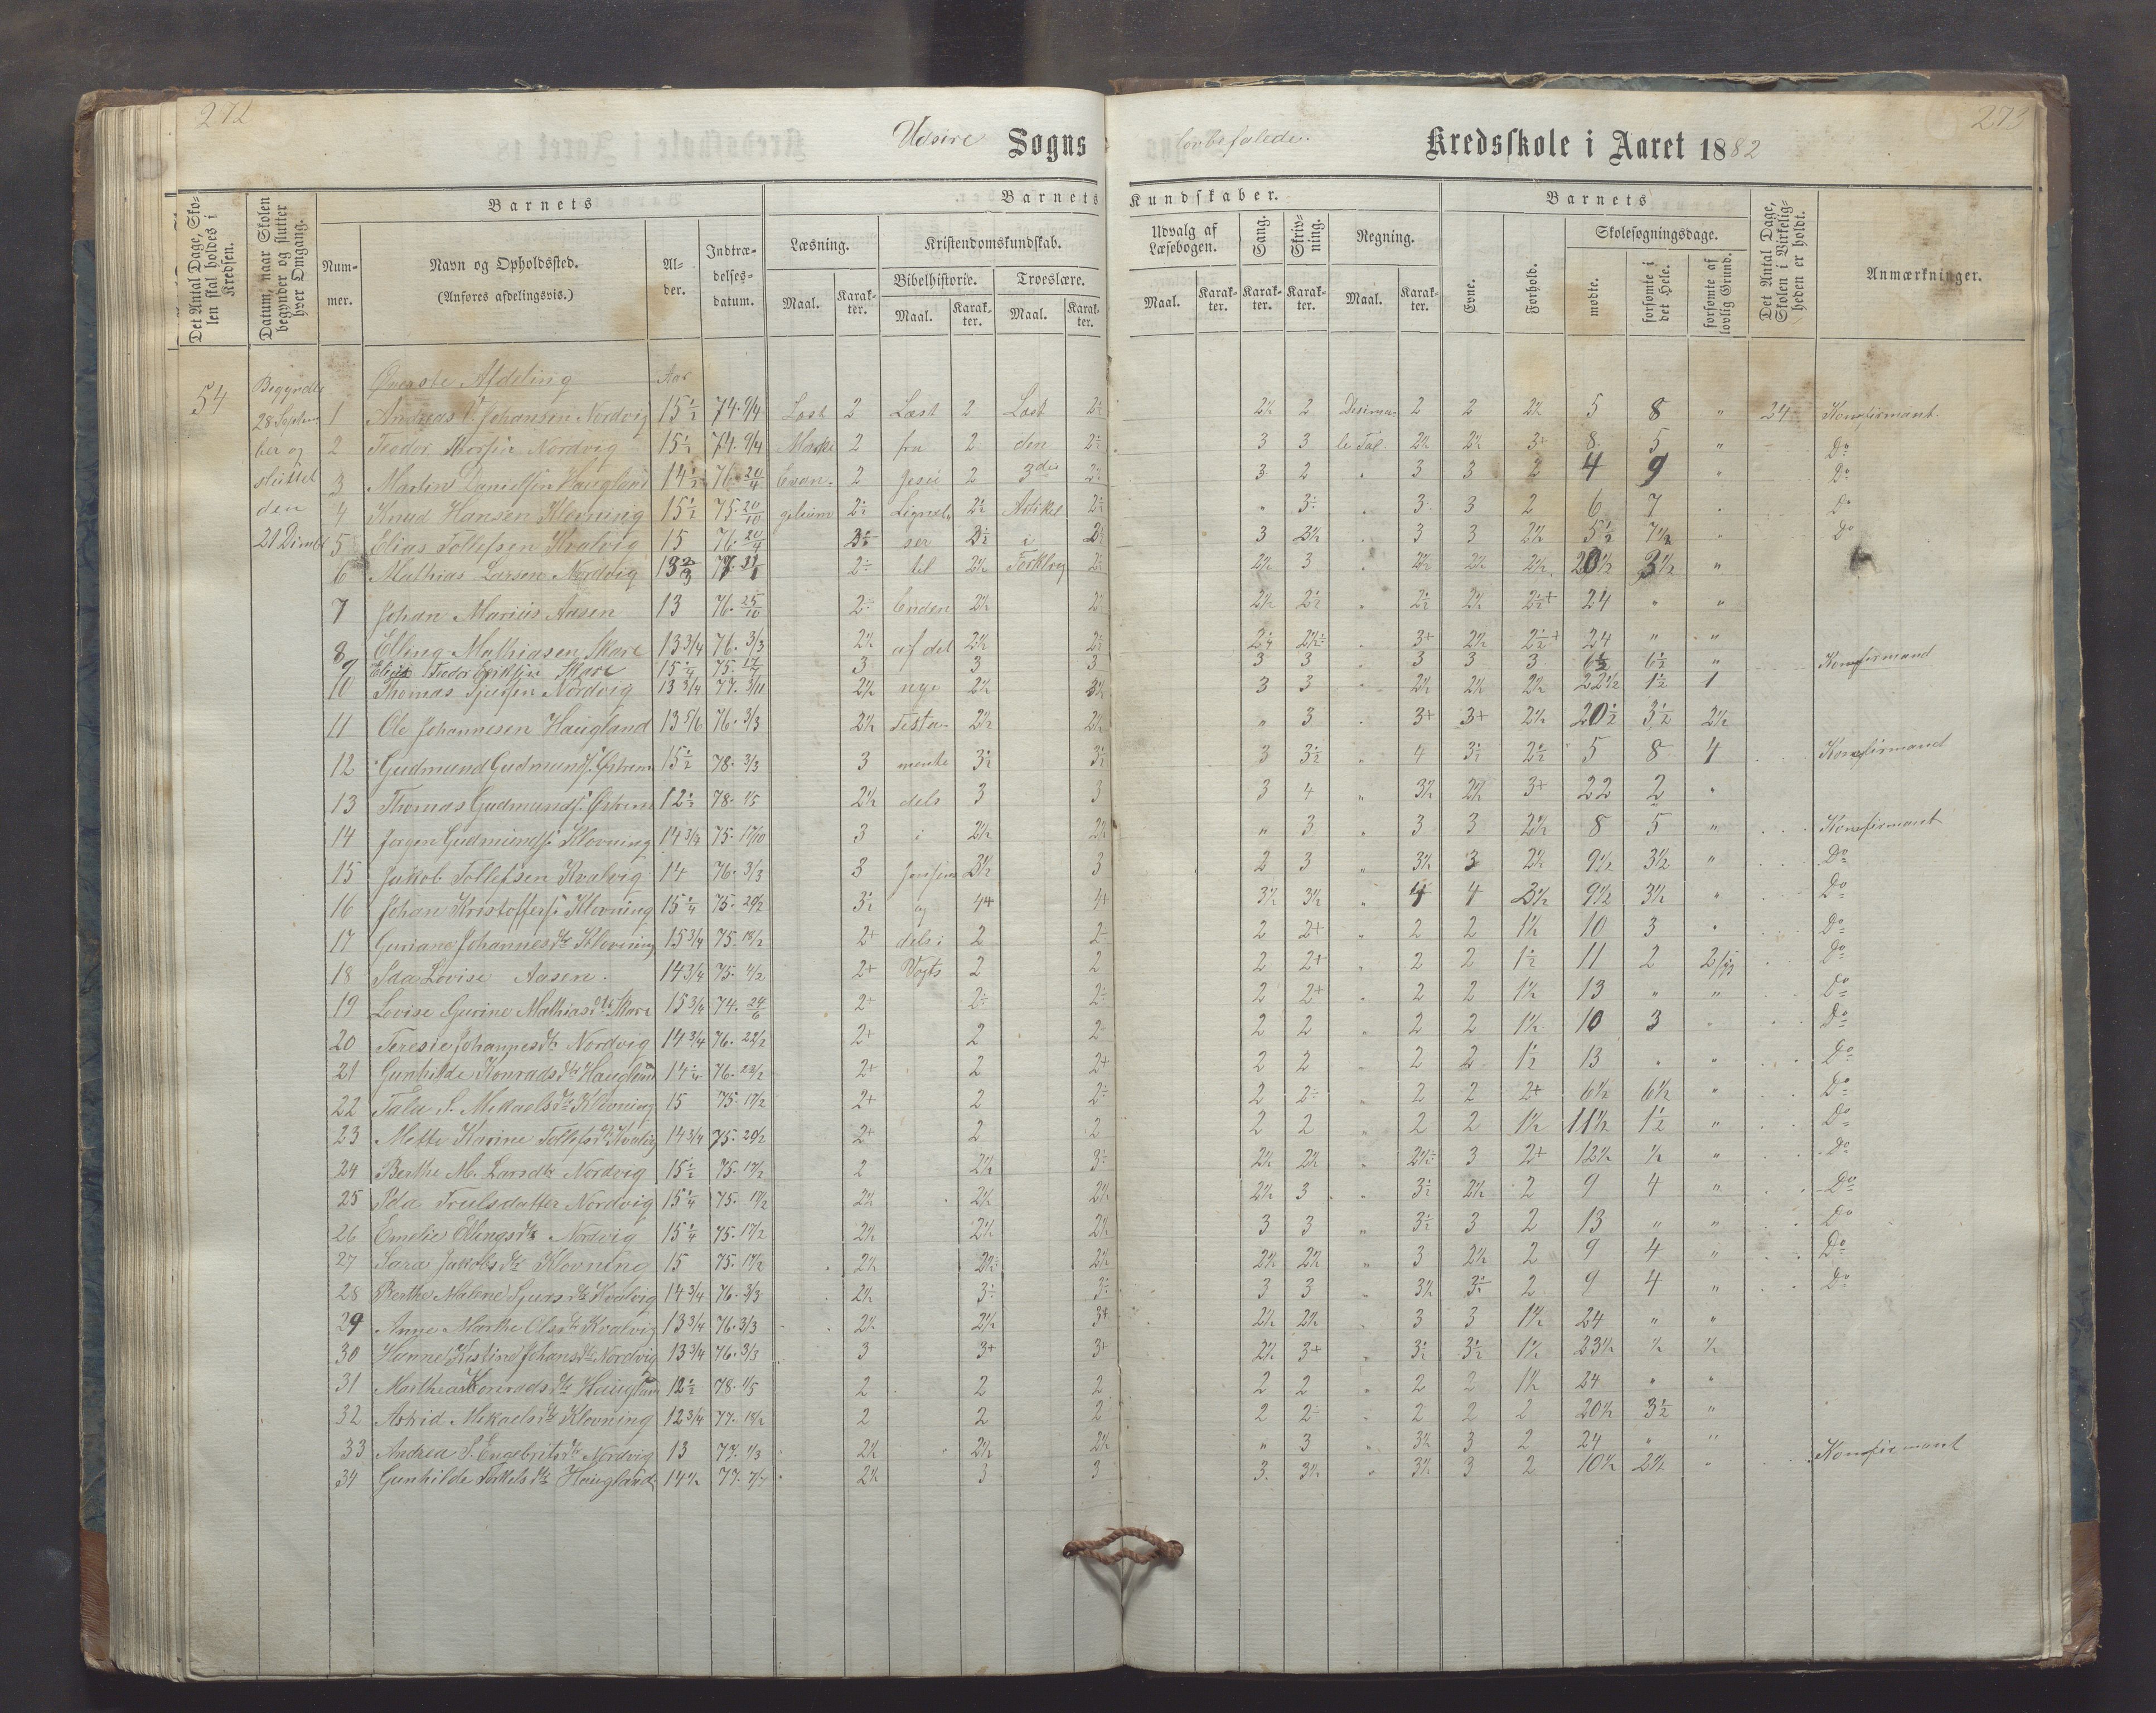 272
273
Udsire Sogns lovbefalede Kredsskole i Aaret 1882
Det Antal Dage, Skolen skal holdes i Kredsen.
Datum, naar Skolen begynder og slutter hver Omgang.
Barnets
Nummer.
Navn og Opholdssted.
(Anføres afdelingsvis.)
Alder.
Indtrædelsesdatum.
Barnets Kundskaber.
Læsning.
Maal. Karakter.
Kristendomskundskab.
Bibelhistorie.
Maal. Karakter.
Troeslære.
Maal. Karakter.
Udvalg af Læsebogen.
Maal. Karakter.
Sang.
Karakter.
Skrivning.
Karakter.
Regning.
Maal. Karakter.
Barnets
Evne.
Forhold.
Skolesøgningsdage.
mødte.
forsømte i det Hele.
forsømte af lovlig Grund.
Det Antal Dage, Skolen i Virkeligheden er holdt.
Anmærkninger.
54
Begyndte
28 Septem
ber og
sluttet
den
21 Decembr
Øverste Afdeling Aar
1 Andreas V. Johansen Nordvig 15½ 74. 9/4 Læst 2 Læst 2 Læst 2½ 2½ 2 Desima- 2 2 2½ 5 8 " 24 Konfirmant
2 Teodor Thorsen Nordvig 15½ 74. 9/4 Marki 2 fra 2 den 2½ 3 3 le Tal 2½ 2½ 3+ 8 5 " Do
3 Martin Danielsen Haugland 14½ 76. 20/4 Evan- 2 Jesu 2 3die 2½ 3 2 " 3 3 2 4 9 " Do
4 Knud Hansen Klovning 15½ 75. 20/10 gelium 2½ Lignel- 2½ Artikel 2½ " 3½ " 3 3 2 6 7 " Do
5 Elias Tollefsen Kvalvig 15 76. 20/4 3½ ser 3½ i 3 3½ " 3 3 2½ 5½ 7½ " Do
6 Mathias Larsen Nordvig 13 2/3 77. 31/1 2÷ til 2½ Forklrg 2½ 2½ 3 " 2½ 2½ 2½ 20½ 3½ "
7 Johan Marius Aasen 13 76. 25/10 2÷ Enden 2½ 2½ 2½ 2½ " 2½ 2½ 2½+ 24 " "
8 Elling Mathiasen Skare 13 3/4 76. 3/3 2½ af det 2½ 2½ 2½ 2½÷ " 3+ 2½ 2½+ 24 " "
9 Teodor Eriksen Skare 15¼ 75. 17/2 3 3 3 3 3 3 3 3 6½ 6½ " Konfirmand
10 Thomas Sjursen Nordvig 13 3/4 77. 3/11 2½ nye 2½ 3½ 3 3 2½ 2½ 2½ 22½ 1½ 1
11 Ole Johannesen Haugland 13 5/6 76. 3/3 2½ Testa- 2½ 2½ " 3 3+ 3+ 2½ 20½ 3½ 2½
12 Gudmund Gudmunds. Østrem 15½ 78. 3/3 3 mente 3½ 3½ 3 3½ " 4 3½ 2½ 5 8 4 Konfirmand
13 Thomas Gudmunds. Østrem 12½ 78. 1/5 2½ dels 3 3 3 4 " 3½ 2½ 3+ 22 2 "
14 Jorgen Gudmunds. Klovning 14 3/4 75. 17/10 3 i 2½ 2½ " 3 " 3 3 2½ 8 5 " Konfirmant
15 Jakob Tollefsen Kvalvig 14 76. 3/3 3 3½ 3 2 3 " 3½ 3 2½ 9½ 3½ " Do
16 Johan Kristoffers. Klovning 15¼ 75. 20/2 3½ og 4+ 4+ 3½ 3½ " 4 4 3½ 9½ 3½ " Do
17 Guriane Johannesdtr Klovning 15 3/4 75. 18/2 2+ dels i 2 2 2 2+ " 2 2 1½ 10 3 " Do
18 Ida Lovise Aasen 14 3/4 75. 4/2 2+ Vogts 2 2 2 2+ " 2 2 1½ 11 2 Do
19 Lovise Gurine Mathiasdtr Skare 15 3/4 74. 24/6 2+ 2÷ 2÷ 2 2+ " 2 2 1½ 13 " " Do
20 Teresie Johannesdtr Nordvig 14 3/4 76. 22/2 2+ 2 2 2 2 " 2 2 1½ 10 3 " Do
21 Gunhilde Konradsdtr Haugland 14¼ 76. 22/2 2+ 2 2+ 2 2 " 2 2 1½ 13 " " Do
22 Tala S. Mikaelsdtr Klovning 15 75. 17/2 2+ 2 2÷ 2 2÷ " 2 2 2+ 6½ 6½ " Do
23 Mette Karine Tollefsdtr Kvalvig 14 3/4 75. 20/2 2+ 2 2 2 2 " 2 2 1½ 11½ 1½ " Do
24 Berthe M. Larsdtr Nordvig 15½ 75. 17/2 2 2½ 3÷ 2½ 2½ " 2½÷ 3 2+ 12½ ½ " Do
25 Ida Trulsdatter Nordvig 15¼ 75. 17/2 2½ 2½ 2½ 2½ 3 " 3½ 2½ 2 9 4 " Do
26 Emelie Ellingsdtr Nordvig 15¼ 75. 17/2 2½ 2½ 2½ 3 3 " 3½ 3 2 13 " " Do
27 Sara Jakobsdtr Klovning 15 75. 17/2 2½ 2½÷ 2½ 2½ 2½ " 3 2½ 2 9 4 " Do
28 Berthe Malene Sjursdtr Kvalvig 14 3/4 76. 3/3 2½ 3÷ 3÷ 3 3 " 3½ 3½ 2 9 4 " Do
29 Anne Marthe Olsdtr Kvalvig 13 3/4 76. 3/3 2½ 2½ 3+ 2½ 2½ " 3 3 1½ 24 " "
30 Hanne Kistine Johansdtr Nordvig 13 3/4 76. 3/3 3 3+ 3+ 2½ 3+ " 3½ 3½ 1½ 23½ ½ ½
31 Marthea Konradsdtr Haugland 12½ 78. 1/5 2 2 2 2 2 " 2 2 1½ 24 " "
32 Astrid Mikaelsdtr Klovning 12 3/4 77. 18/2 2 2 2 2 2÷ " 2 2 2 20½ 3½ "
33 Andrea S. Engebritsdtr Nordvig 13 77. 1/3 2½ 2½ 2½ " 3 " 3½ 3 2 24 " "
34 Gunhilde Torkelsdtr Haugland 14½ 77. 2½ 3 3 3 3½ " 3½ 3 2 10½ 2½ " Konfirmant